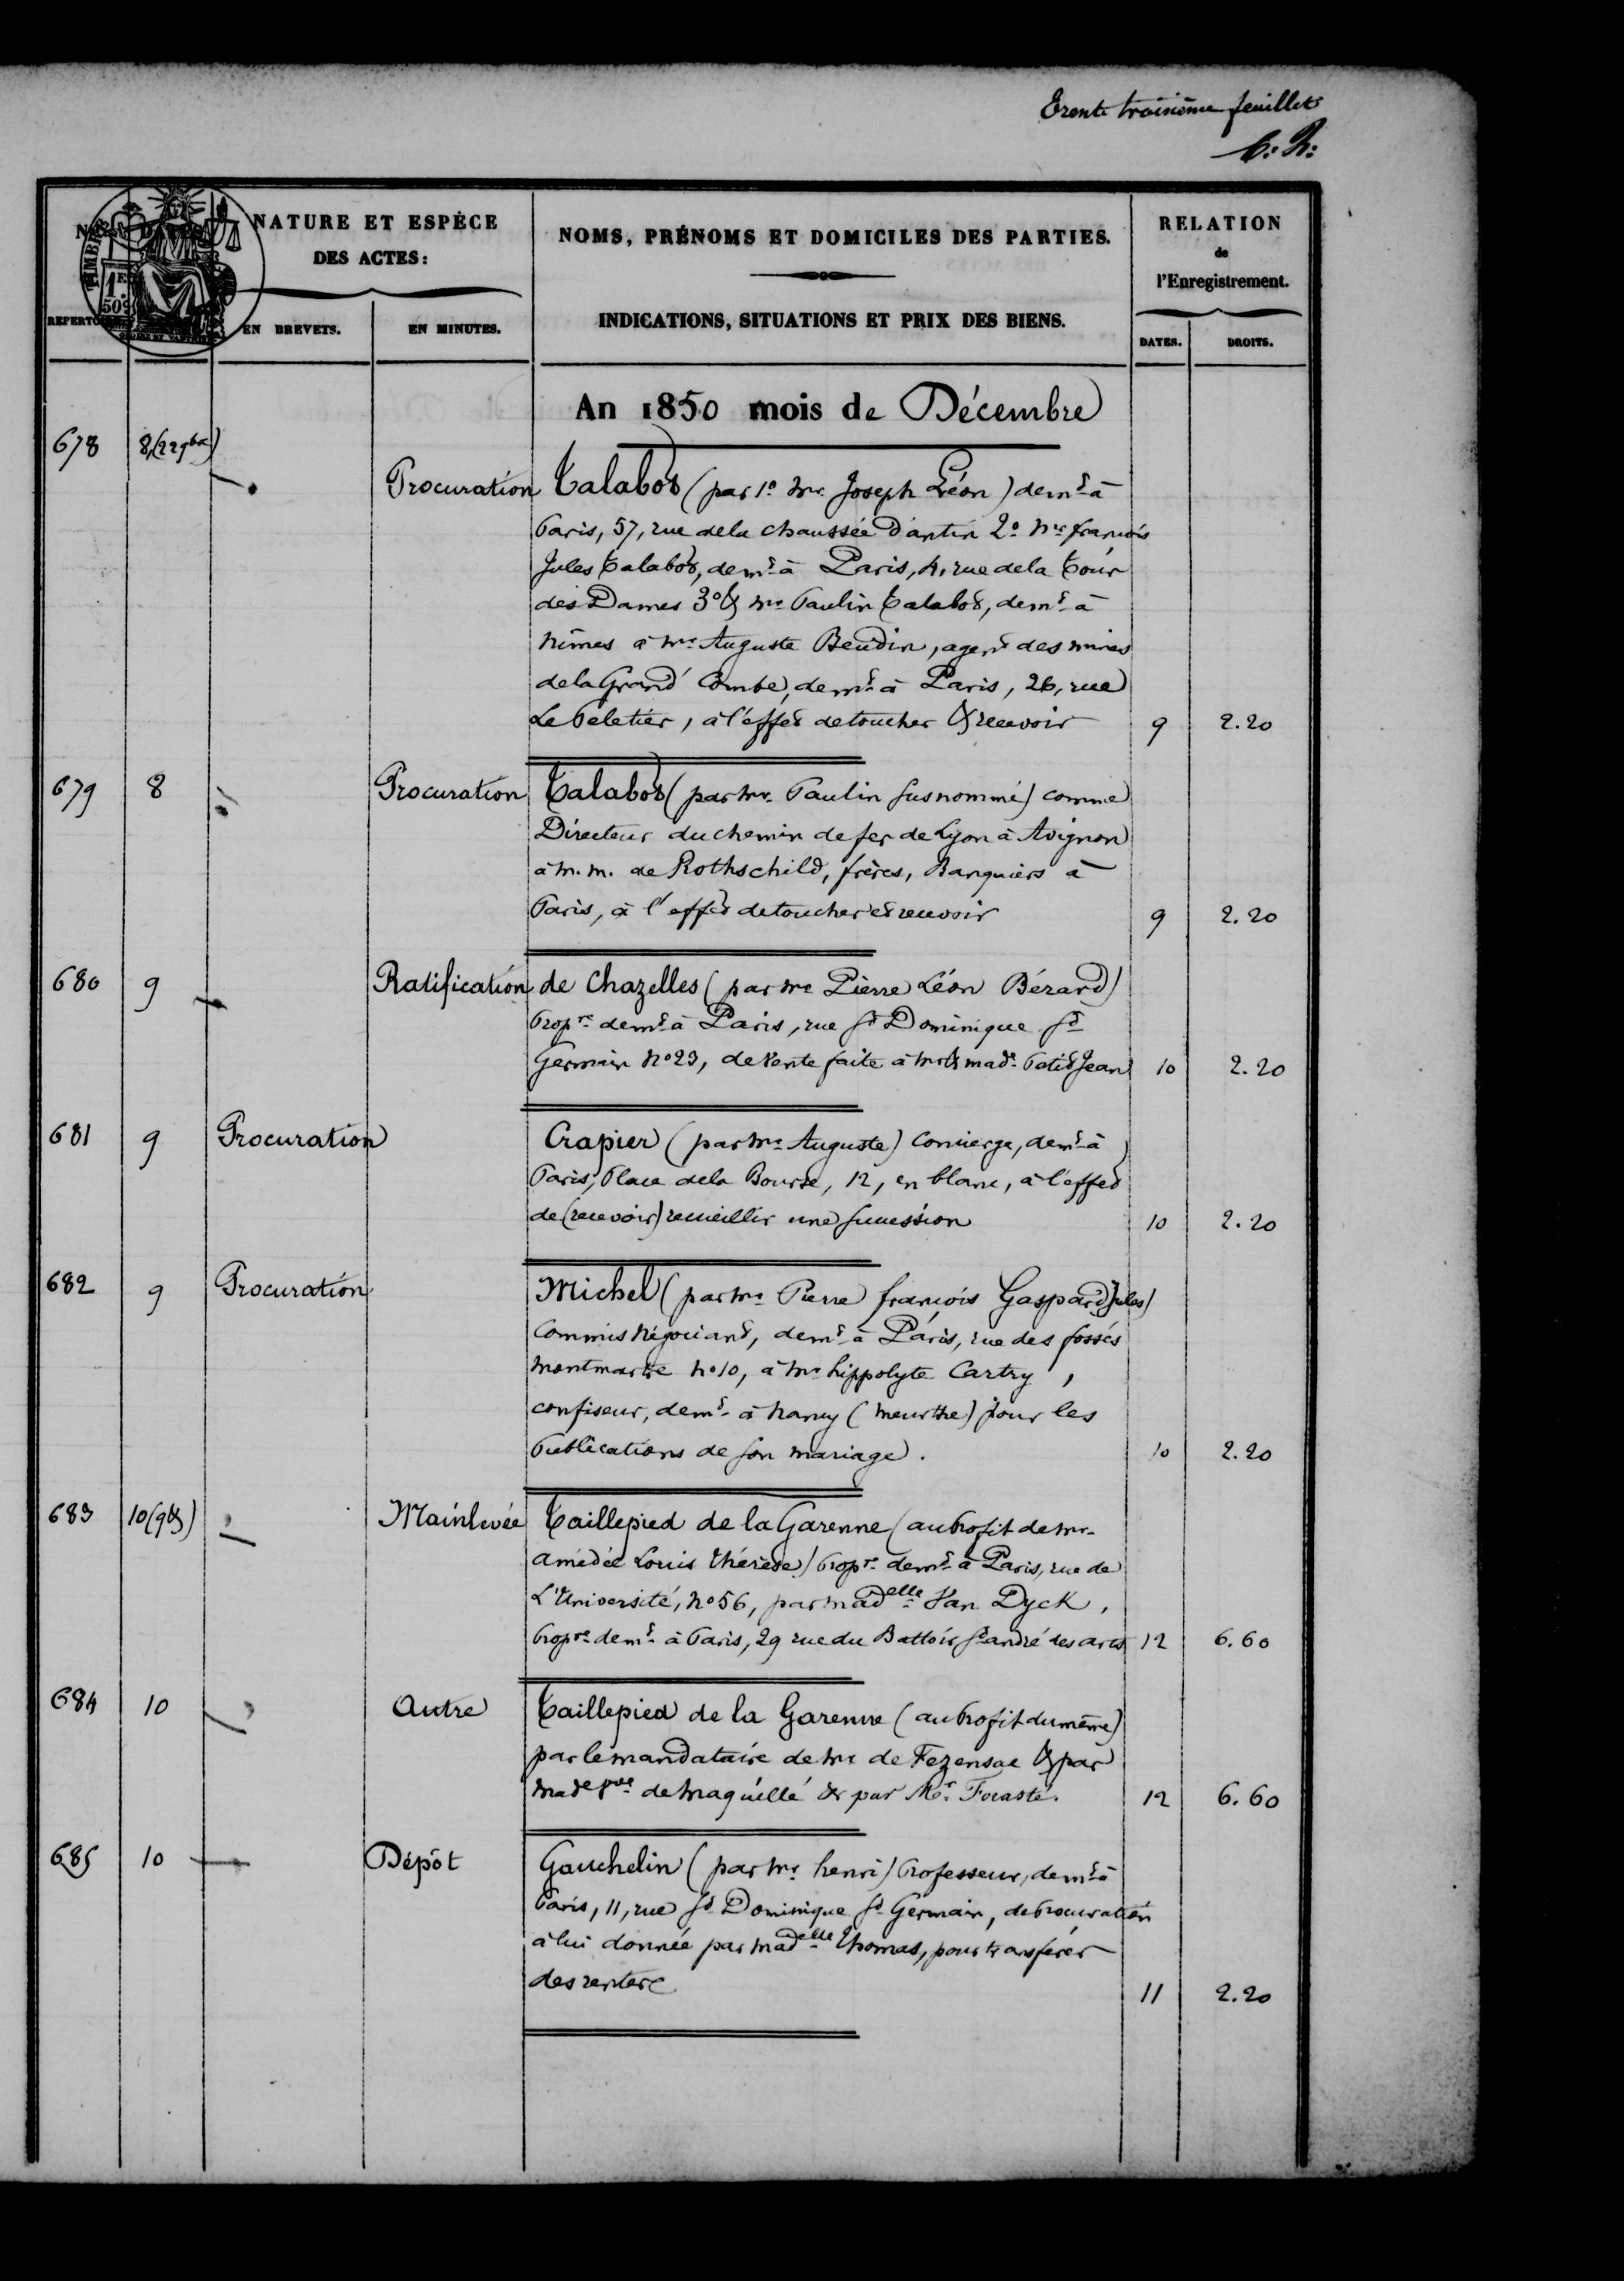 Trente troisième feuillet
NATURE ET ESPÈCE
DES ACTES:
NOMS, PRÉNOMS ET DOMICILES DES PARTIES.
INDICATIONS, SITUATIONS ET PRIX DES BIENS.
RELATION
de
l'Enregistrement.
EN BREVETS.
EN MINUTES.
DATES.
DROITS.
An 1850 mois de Décembre
678 8,(22 9bre)
Procuration Talabot (par 1o Mr. Joseph Léon) demt à
Paris, 57, rue de la chaussée d'antin 2o Mr françois
Jules Talabot, demt à Paris, 4, rue de la Tour
des Dames 3o & Mr Paulin Talabot, demt à
Nîmes à Mr Auguste Beudin, agent des mines
de la Grand' Combe, demt à Paris, 26, rue
Le Peletier, à l'effet de toucher & recevoir 9 2.20
679 8 Procuration Talabot (par Mr. Paulin susnommé) comme
Directeur du chemin de fer de Lyon à Avignon
à M.M. de Rothschild, frères, Banquiers à
Paris, à l'effet de toucher et recevoir 9 2.20
680 9 Ratification de Chazelles (par Mr Pierre Léon Bérard)
Propre demt à Paris, rue St Dominique St
Germain No 23, de Vente faite à Mr & made Petit Jean 10 2.20
681 9 Procuration Crapier (par Mr Auguste) Concierge, demt à
Paris, Place de la Bourse, 12, en blanc, à l'effet
de (recevoir) recueillir une succession 10 2.20
682 9 Procuration Michel (par Mr Pierre françois Gaspard Jules)
Commis Négociant, demt à Paris, rue des fossés
montmartre No 10, à Mr hippolyte Cartry,
confiseur, demt à Nancy (Meurthe) pour les
Publications de son mariage. 10 2.20
683 10 (9 &) Mainlevée Taillepied de la Garenne (au Profit de Mr.
Amédée Louis Thérèse) Propre demt à Paris, rue de
L'Université, No 56, par madelle Van Dyck,
Propre demt à Paris, 29 rue du Battoir St andré des arts 12 6.60
684 10 Autre Taillepied de la Garenne (au Profit du même)
par le mandataire de Mr de Fezensac & par
Made Vve de Maquillé & par Mr. 12 6.60
685 10 Dépôt Gauchelin (par Mr henri) Professeur, demt à
Paris, 11, rue St Dominique St Germain, de Procuration
à lui donnée par Madelle Thomas, pour transférer
des rentes 11 2.20